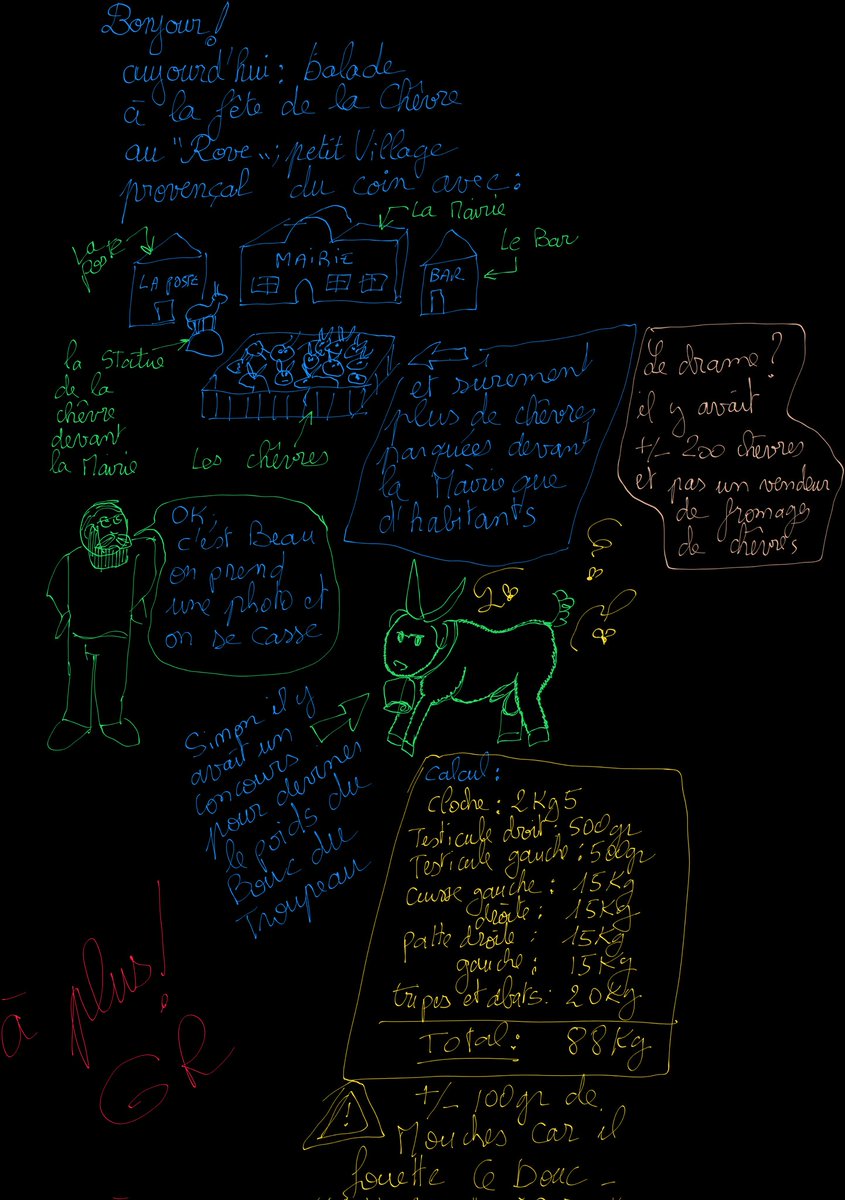 Bonjour!
aujourd'hui: balade
à la fête de la Chèvre
au "Rove"; petit Village
provençal du coin avec:
La Mairie
La poste
Le Bar
LA POSTE
MAIRIE
BAR
la statue
de la
chèvre
devant
la Mairie
Les chèvres
et sûrement
plus de chèvres
parquées devant
la Mairie que
d'habitants
Le drame?
il y avait
+/- 200 chèvres
et pas un vendeur
de fromages
de chèvres
OK,
c'est Beau
on prend
une photo et
on se casse
Sinon il y
avait un
concours
pour deviner
le poids du
Bouc du
Troupeau
calcul:
cloche: 2Kg5
Testicule droit: 500gr
Testicule gauche: 500gr
cuisse gauche: 15Kg
droite: 15Kg
patte droite: 15Kg
gauche: 15Kg
tripes et abats: 20Kg
Total: 88Kg
!
+/- 100gr de
Mouches car il
fouette ce Bouc -
à plus!
GR